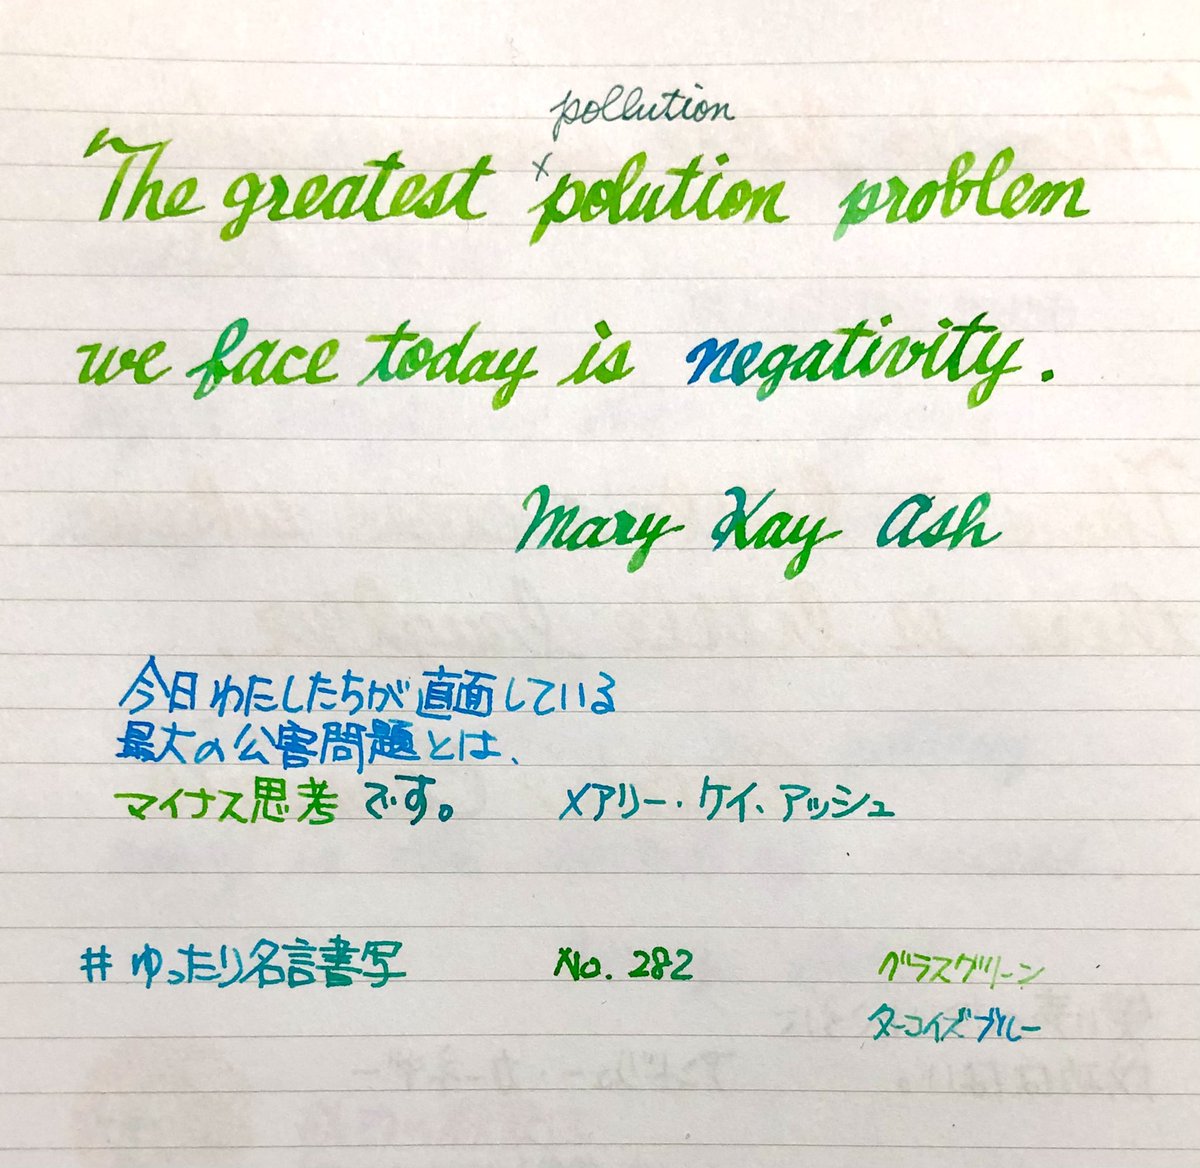 pollution
"The greatest ×polution problem
we face today is negativity.
Mary Kay Ash
今日わたしたちが直面している
最大の公害問題とは、
マイナス思考です。 メアリー・ケイ・アッシュ
#ゆったり名言書写 No. 282 グラスグリーン
ターコイズブルー